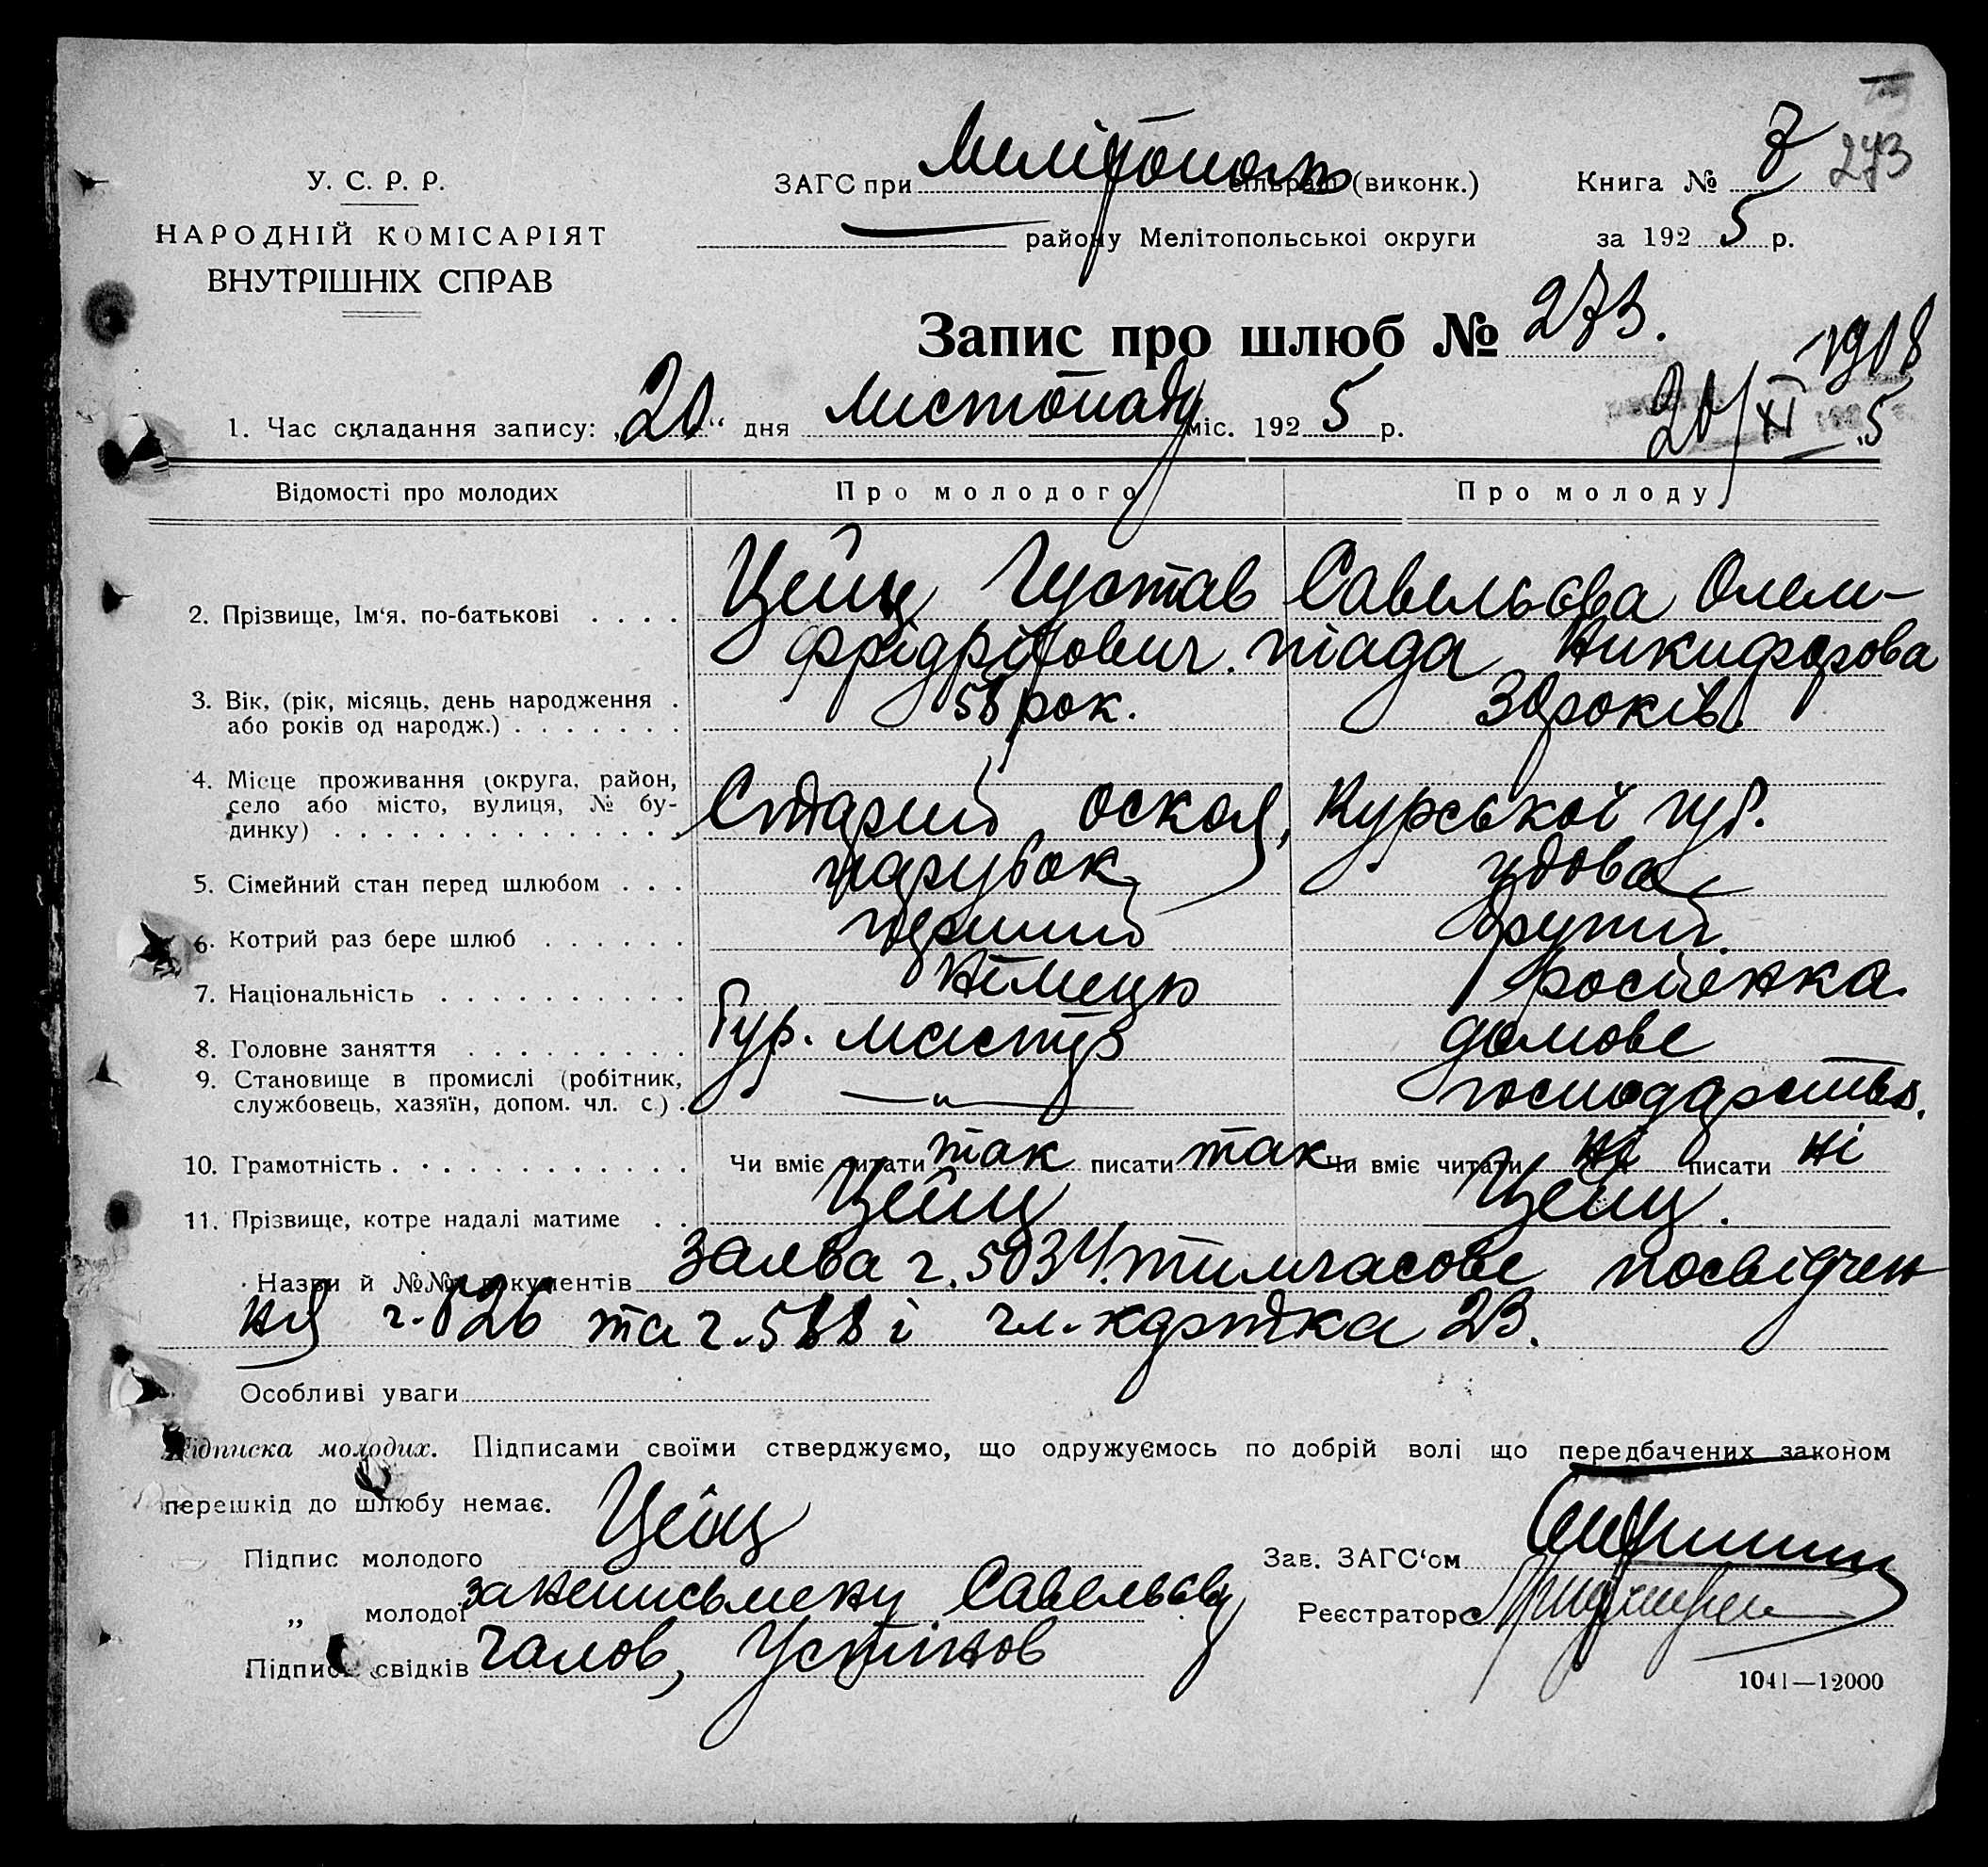 273
У. С. Р. Р.
НАРОДНІЙ КОМІСАРІЯТ
ВНУТРІШНІХ СПРАВ
ЗАГС при Мелітополь сільраді (виконк.)
Книга № 7
району Мелітопольськоі округи
за 192 5 р.
Запис про шлюб № 273.
1908
20/XI 5
1. Час складання запису: „20“ дня листопаду міс. 192 5 р.
Відомості про молодих Про молодого Про молоду
2. Прізвище, Ім‘я, по-батькові Цейц Густав Савельєва Олем-
Фрідріхович. піада Никифорова
3. Вік, (рік, місяць, день народження
або років од народж.) 58 рок. 30 років.
4. Місце проживання (округа, район,
село або місто, вулиця, № бу-
динку) Старий Оскол, Курської губ.
5. Сімейний стан перед шлюбом парубок удова
6. Котрий раз бере шлюб перший другий.
7. Національність Німець росіенка.
8. Головне заняття бур. мастер домове
9. Становище в промислі (робітник,
службовець, хазяїн, допом. чл. с.) —„— господарство.
10. Грамотність Чи вміє читати так писати так Чи вміє читати ні писати ні
11. Прізвище, котре надалі матиме Цейц Цейц.
Назви й №№ документів заява ч. 5034. тимчасове посвідчен
ня ч. 826 та ч. 588 і чл. картка 23.
Особливі уваги
Підписка молодих. Підписами своїми стверджуємо, що одружуємось по добрій волі що передбачених законом
перешкід до шлюбу немає.
Підпис молодого Цейц
Зав. ЗАГС‘ом
„ молодої за неписьмену Савельєву
Реєстратор
Підпис свідків Чалов, Устінов
1041—12000